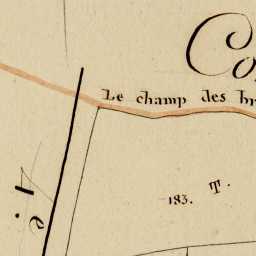 Le champ des
183. T.
4.e